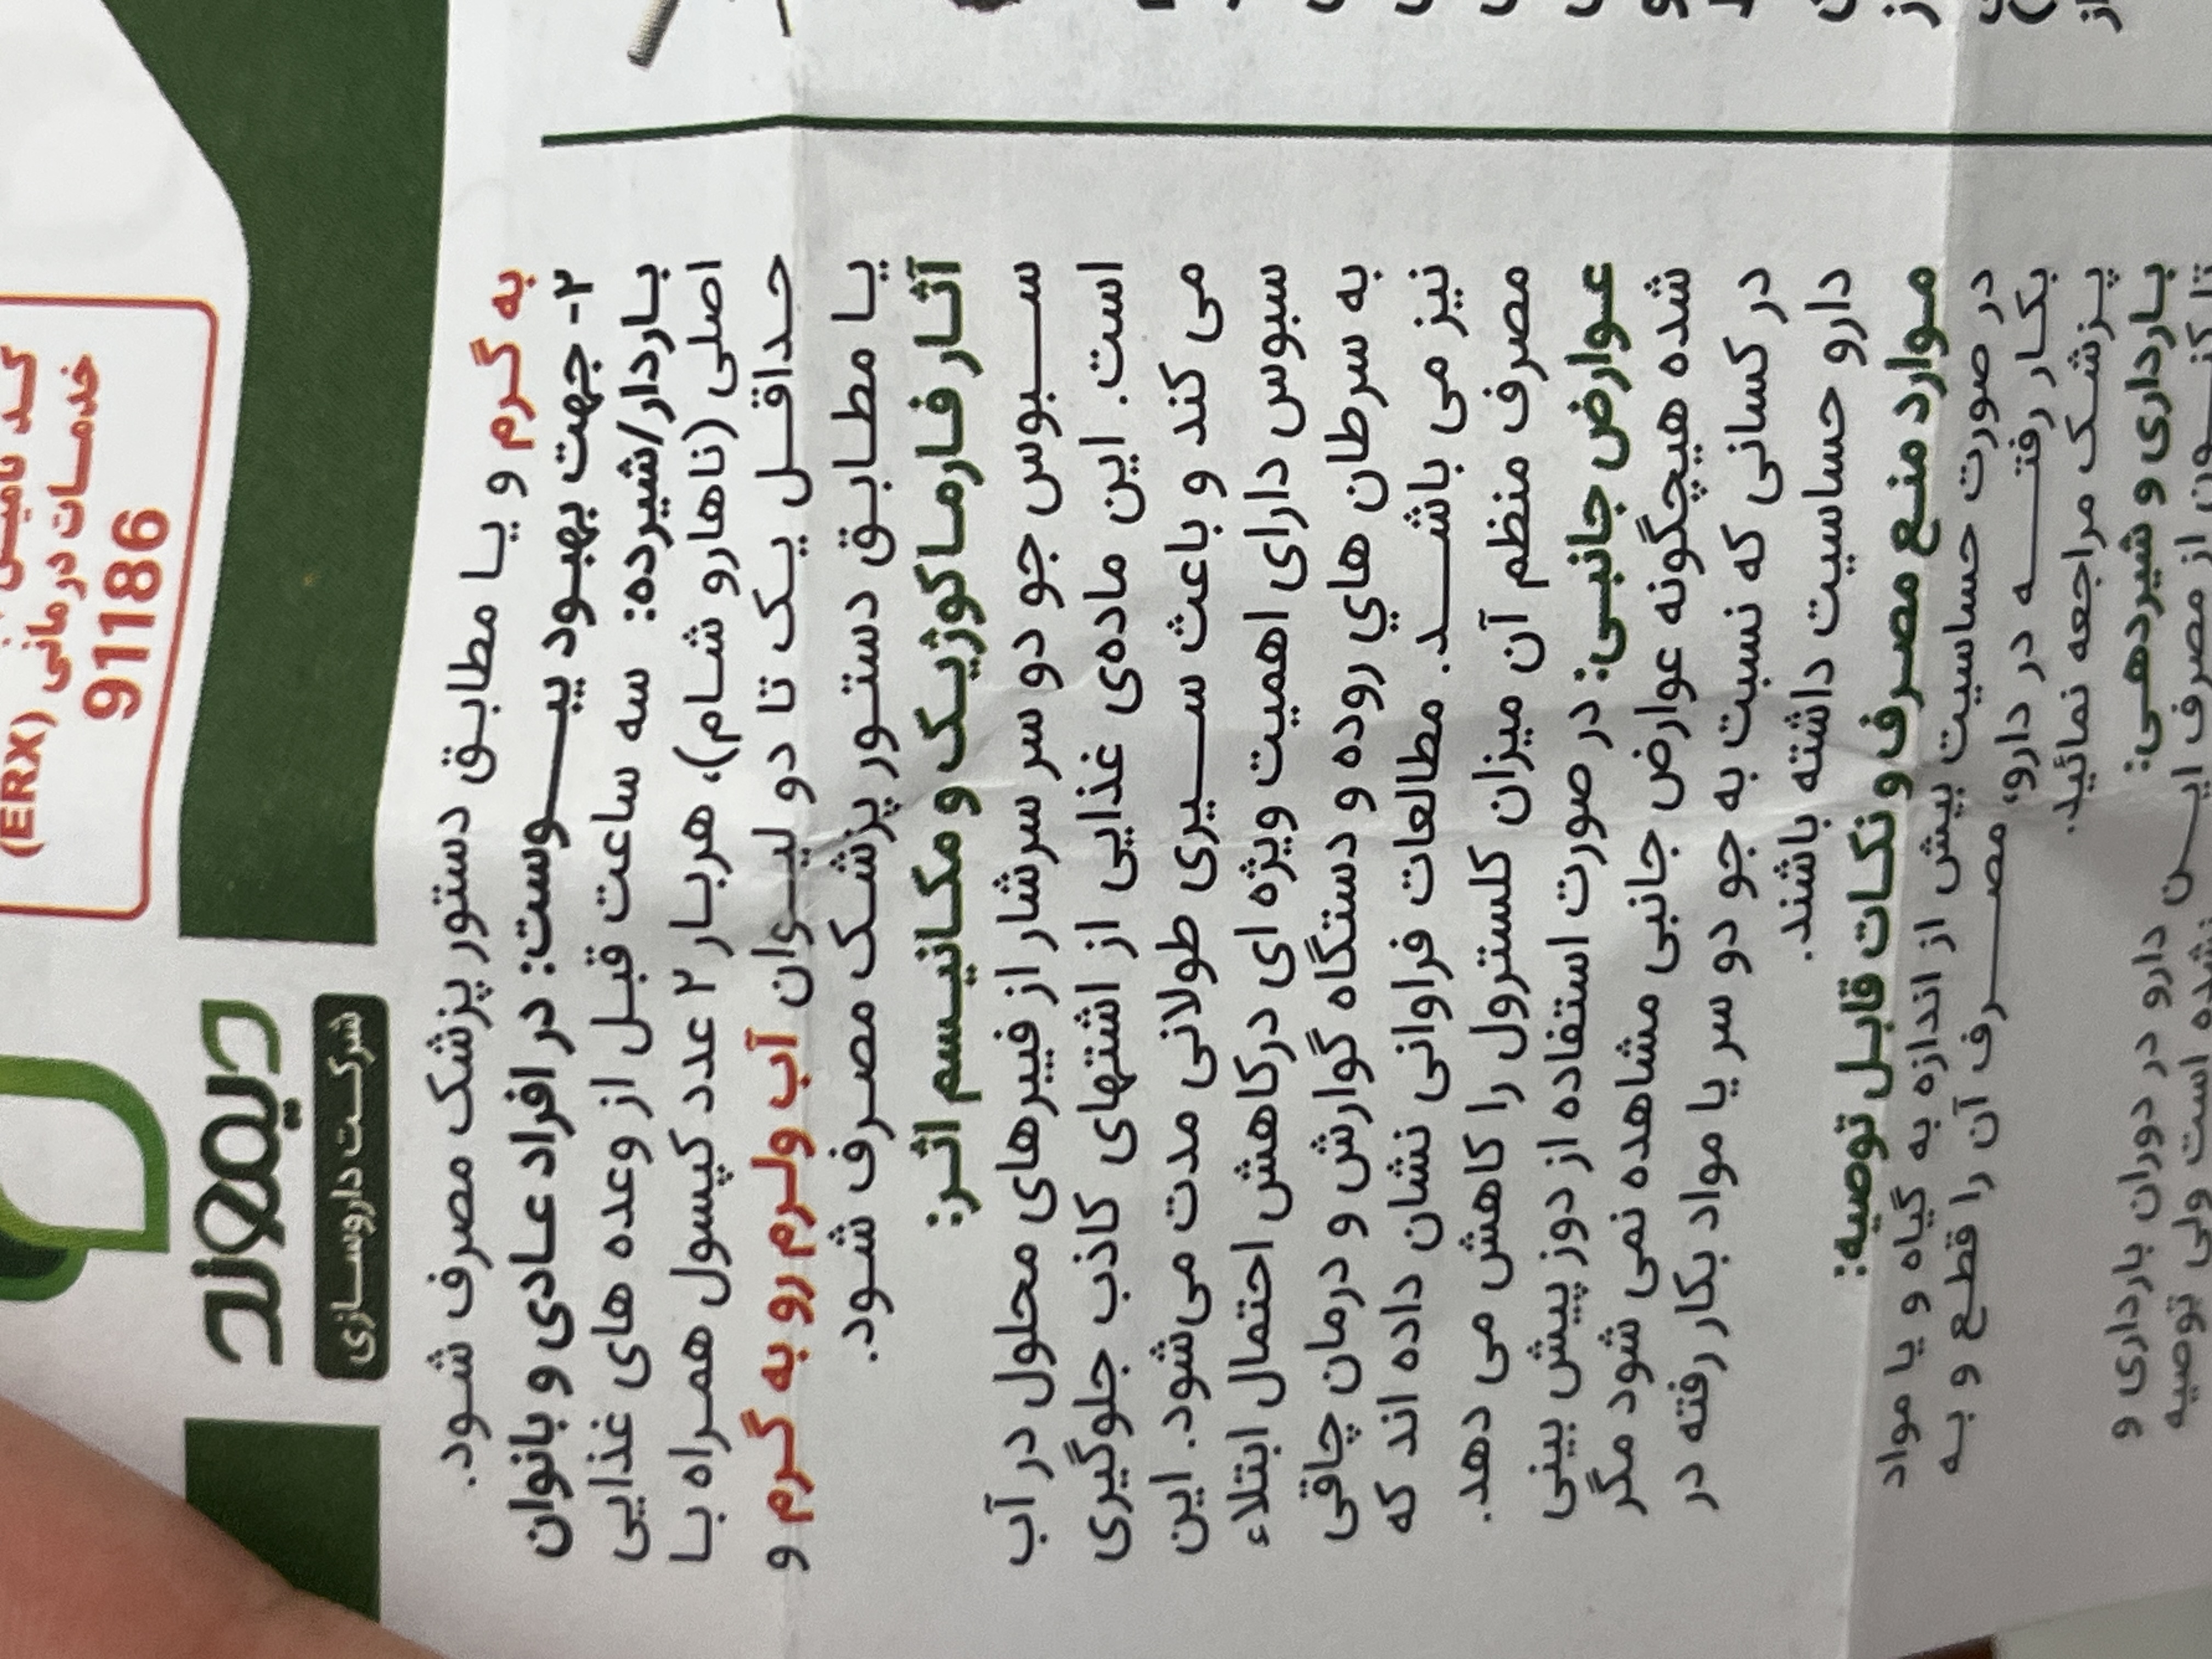 خدمات درمانی (ERX)
91186
دیموند
شرکت داروسازی
به گرم و یا مطابق دستور پزشک مصرف شود.
۲- جهت بهبود یبوست: در افراد عادی و بانوان
باردار/شیرده: سه ساعت قبل از وعده های غذایی
اصلی (ناهار و شام)، هربار ۲ عدد کپسول همراه با
حداقل یک تا دو لیوان آب ولرم رو به گرم و
یا مطابق دستور پزشک مصرف شود.
آثار فارماکوژیک و مکانیسم اثر:
سبوس جو دو سر سرشار از فیبرهای محلول در آب
است. این ماده‌ی غذایی از اشتهای کاذب جلوگیری
می کند و باعث سیری طولانی مدت می‌شود. این
سبوس دارای اهمیت ویژه ای درکاهش احتمال ابتلاء
به سرطان هاي روده و دستگاه گوارش و درمان چاقی
نیز می باشد. مطالعات فراوانی نشان داده اند که
مصرف منظم آن میزان کلسترول را کاهش می دهد.
عوارض جانبی: در صورت استفاده از دوز پیش بینی
شده هیچگونه عوارض جانبی مشاهده نمی شود مگر
در کسانی که نسبت به جو دو سر یا مواد بکار رفته در
دارو حساسیت داشته باشند.
موارد منع مصرف و نکات قابل توصیه:
در صورت حساسیت بیش از اندازه به گیاه و یا مواد
بکار رفته در دارو، مصرف آن را قطع و به
پزشک مراجعه نمائید.
بارداری و شیردهی:
تاکنون از مصرف این دارو در دوران بارداری و
نشده است ولی توصیه